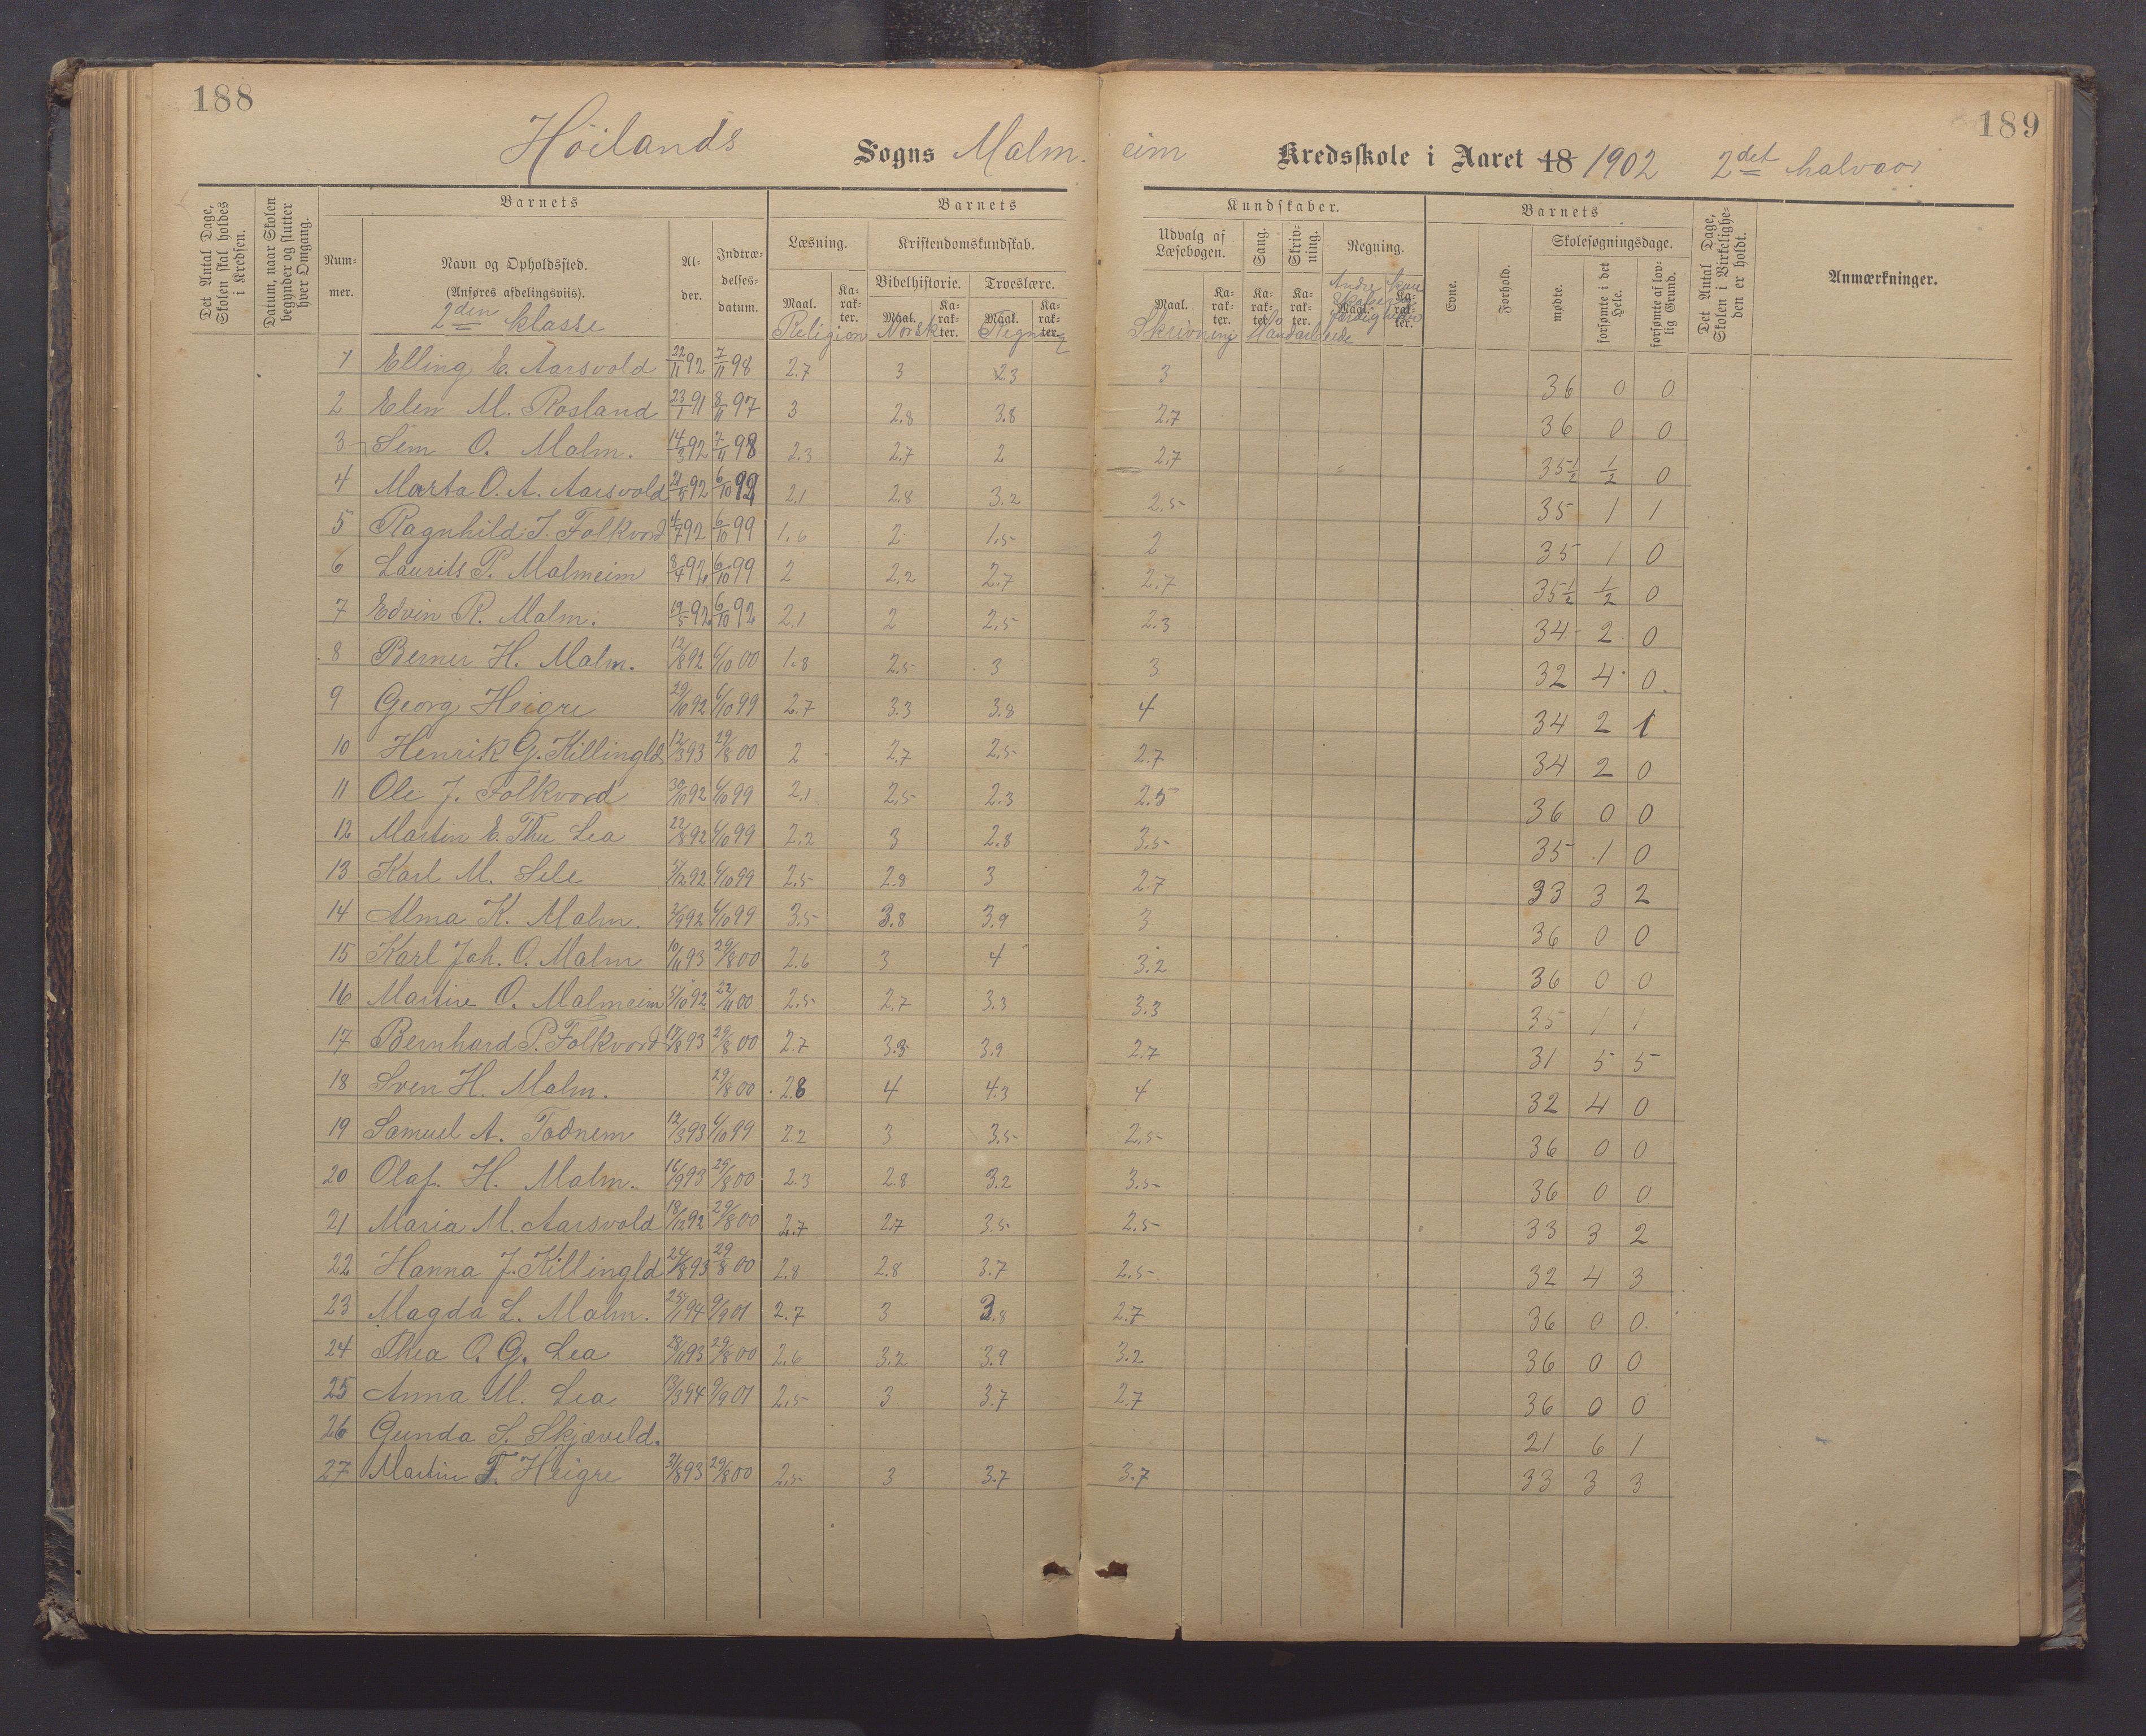 188
189
Höilands Sogns Malm. eim Kredsskole i Aaret 18 1902 2det halvaar
Det Antal Dage, Skolen skal holdes i Kredsen.
Datum, naar Skolen begynder og slutter hver Omgang.
Barnets
Barnets
Kundskaber.
Barnets
Det Antal Dage, Skolen i Virkeligheden er holdt.
Anmærkninger.
Nummer.
Navn og Opholdssted.
(Anføres afdelingsviis).
2den klasse
Alder.
Indtrædelsesdatum.
Læsning.
Kristendomskundskab.
Udvalg af Læsebogen.
Sang.
Skrivning.
Regning.
Evne.
Forhold.
Skolesøgningsdage.
Bibelhistorie.
Troeslære.
mødte.
forsømte i det Hele.
forsømte af lovlig Grund.
Maal. Karakter. Maal. Karakter. Maal. Karakter. Maal. Karakter. Karakter. Karakter. Maal. Karakter.
Religion Norsk Regning Skrivning Haandarbeide
1 Elling E. Aarsvold 22/11 92 7/11 98 2.7 3 2.3 3 36 0 0
2 Elen M. Rosland 23/1 91 8/11 97 3 2.8 3.8 2.7 36 0 0
3 Sem O. Malm. 14/3 92 7/11 98 2.3 2.7 2 2.7 35½ ½ 0
4 Marta O. A. Aarsvold 21/5 92 6/10 99 2.1 2.8 3.2 2.5 35 1 1
5 Ragnhild J. Folkvord 4/7 92 6/10 99 1.6 2 1.5 2 35 1 0
6 Laurits P. Malmeim 8/4 92 6/10 99 2 2.2 2.7 2.7 35½ ½ 0
7 Edvin R. Malm. 19/5 92 6/10 92 2.1 2 2.5 2.3 34 2 0
8 Berner H. Malm. 12/8 92 6/10 00 1.8 2.5 3 3 32 4 0
9 Georg Heigre 29/10 92 6/10 99 2.7 3.3 3.8 4 34 2 1
10 Henrik G. Killingld 12/3 93 29/8 00 2 2.7 2.5 2.7 34 2 0
11 Ole J. Folkvord 30/10 92 6/10 99 2.1 2.5 2.3 2.5 36 0 0
12 Martin E. Thu Lea 22/8 92 6/10 99 2.2 3 2.8 3.5 35 1 0
13 Karl M. Sele 5/12 92 6/10 99 2.5 2.8 3 2.7 33 3 2
14 Alma K. Malm. 2/9 92 6/10 99 3.5 3.8 3.9 3 36 0 0
15 Karl Joh. O. Malm 10/11 93 29/8 00 2.6 3 4 3.2 36 0 0
16 Martine O. Malmeim 5/10 92 22/11 00 2.5 2.7 3.3 3.3 35 1 1
17 Bernhard P. Folkvord 17/8 93 29/8 00 2.7 3.3 3.9 2.7 31 5 5
18 Sven H. Malm. 29/8 00 2.8 4 4.3 4 32 4 0
19 Samuel A. Todnem 12/3 93 6/10 99 2.2 3 3.5 2.5 36 0 0
20 Olaf. H. Malm. 16/9 93 29/8 00 2.3 2.8 3.2 3.5 36 0 0
21 Maria M. Aarsvold 18/12 92 29/8 00 2.7 2.7 3.5 2.5 33 3 2
22 Hanna J. Killingld 24/8 93 29/8 00 2.8 2.8 3.7 2.5 32 4 3
23 Magda L. Malm. 25/1 94 9/9 01 2.7 3 3.8 2.7 36 0 0
24 Thea O. G. Lea 28/11 93 29/8 00 2.6 3.2 3.9 3.2 36 0 0
25 Anna M. Lea 13/3 94 9/9 01 2.5 3 3.7 2.7 36 0 0
26 Gunda S. Skjæveld. 21 6 1
27 Martin T. Heigre 31/8 93 29/8 00 2.5 3 3.7 3.7 33 3 3